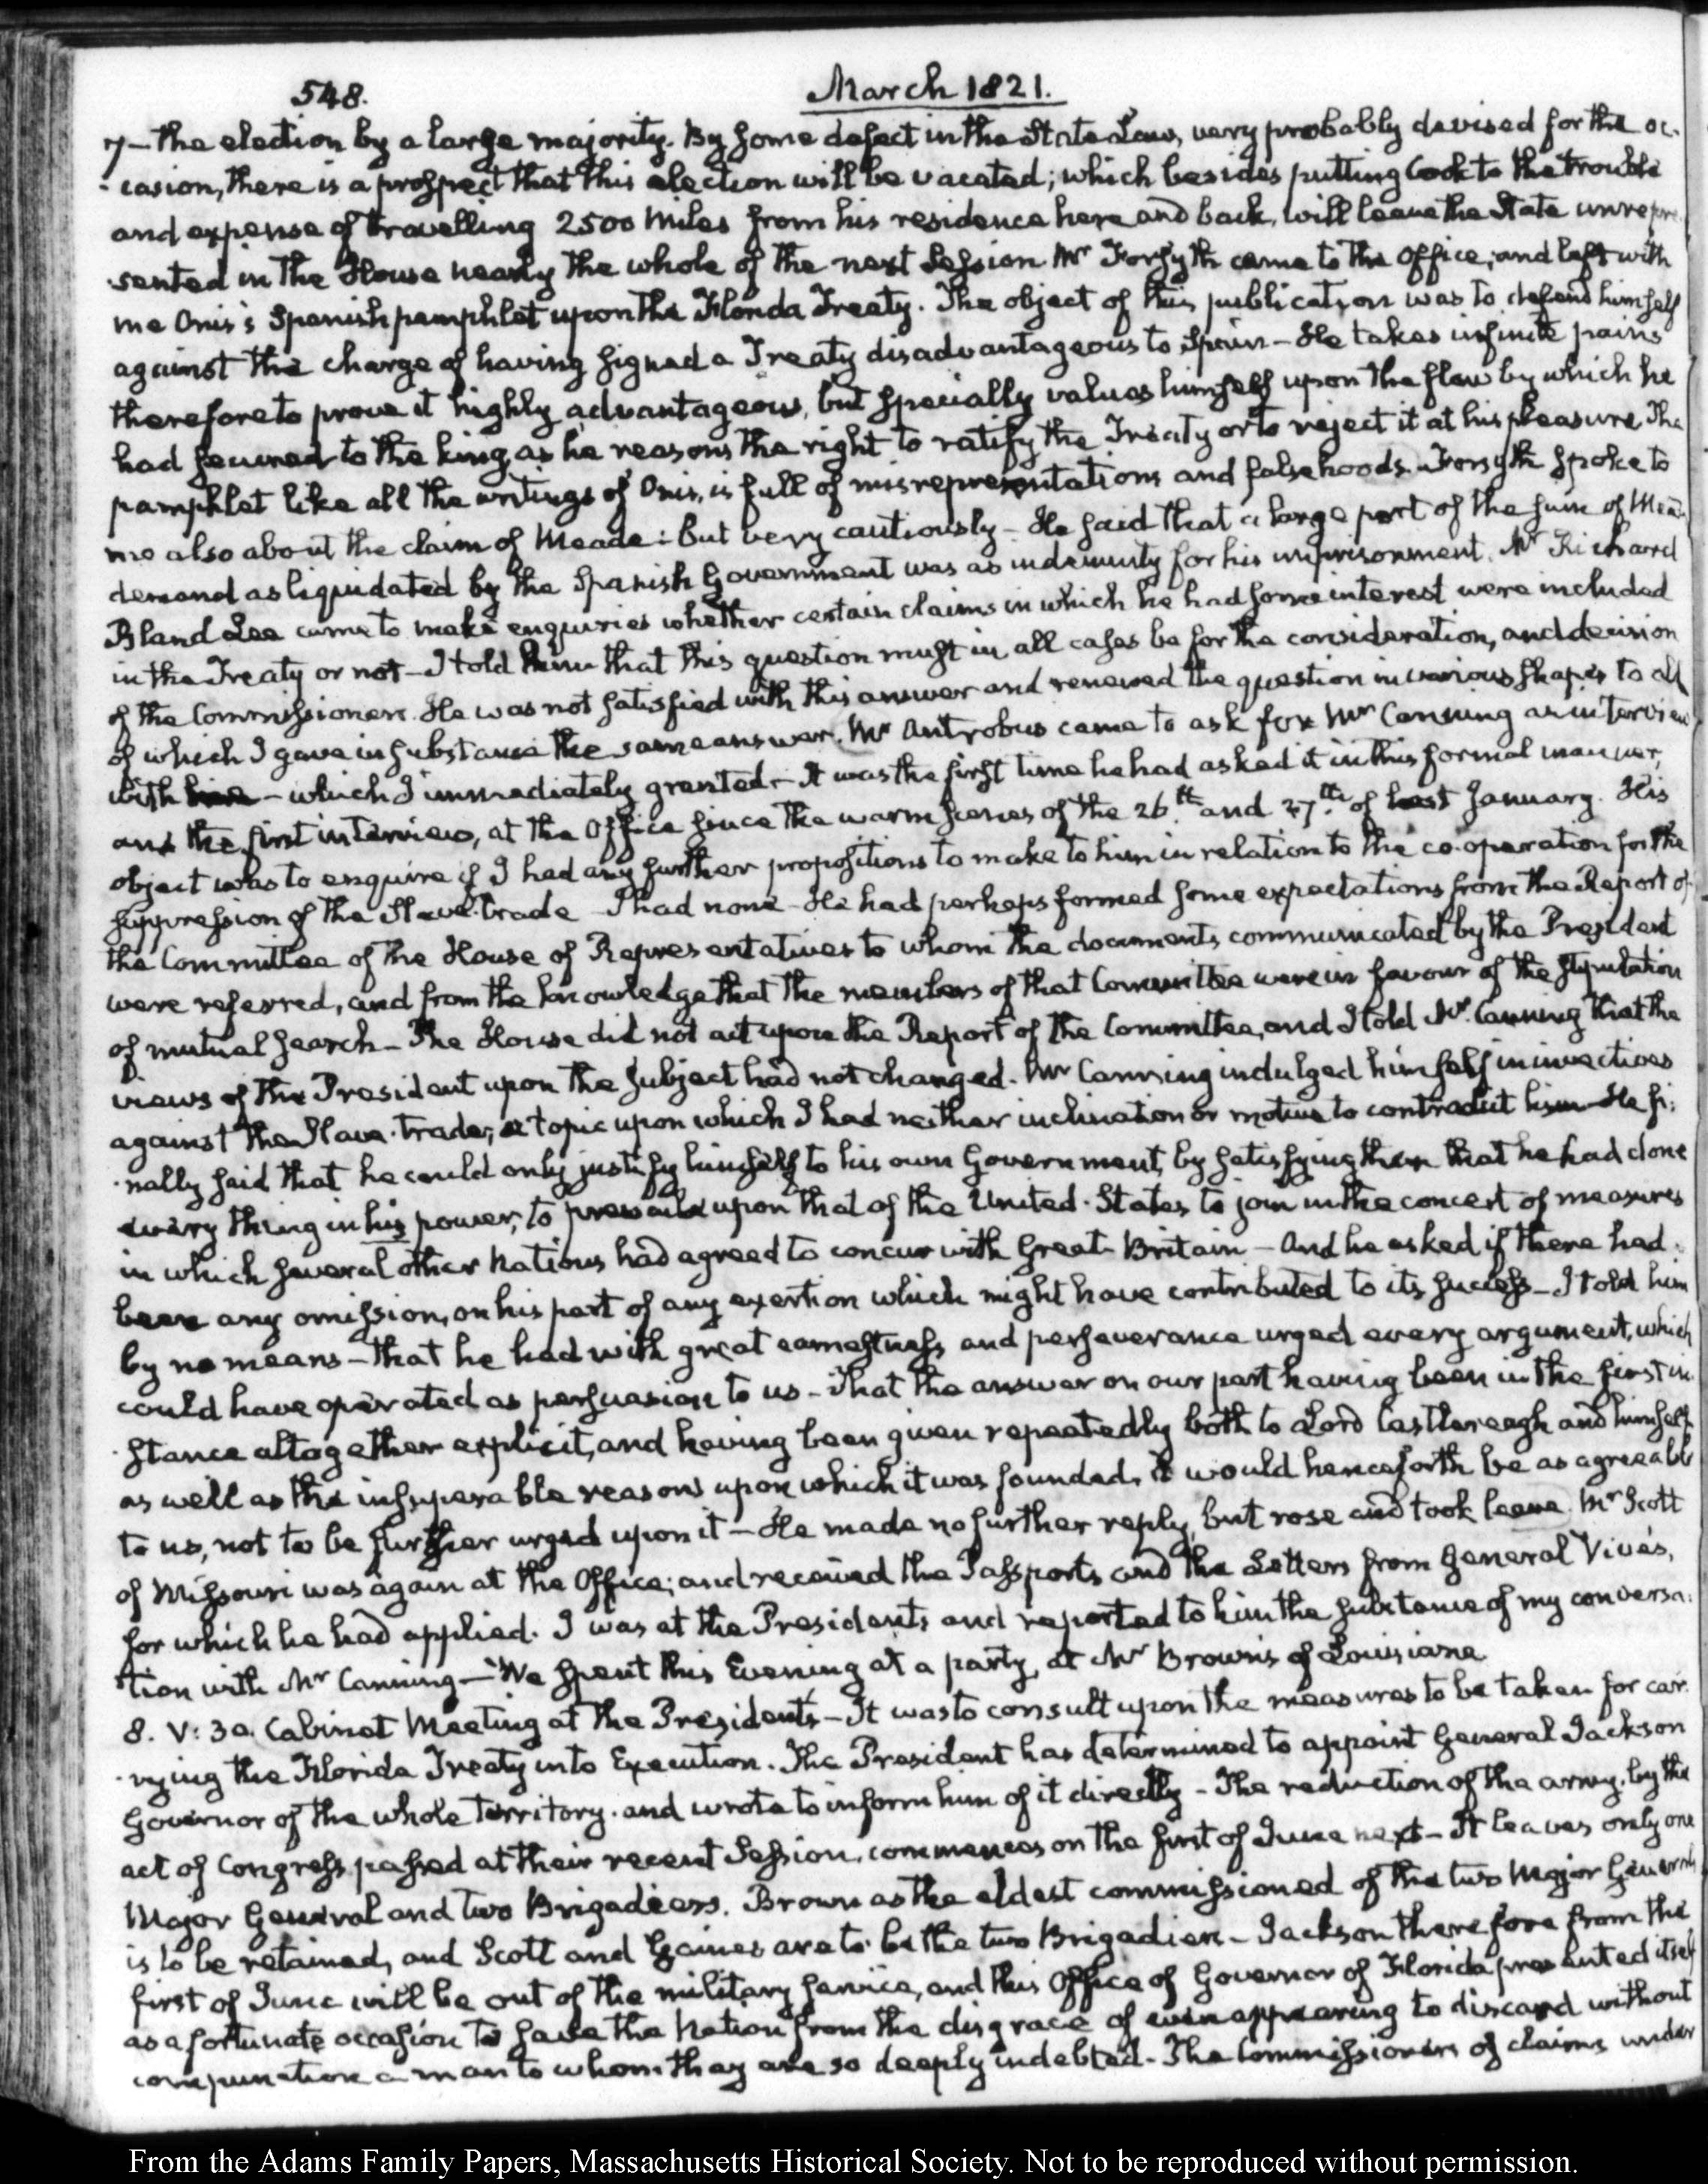 548.
March 1821.
7 — the election by a large majority. By some defect in the State Law, very probably devised for the oc-
casion, there is a prospect that this election will be vacated; which besides putting Cook to the trouble
and expense of travelling 2500 Miles from his residence here and back, will leave the State unrepre-
sented in the House nearly the whole of the next Session. Mr Forsyth came to the Office, and left with
me Onis's Spanish pamphlet upon the Florida Treaty. The object of this publication was to defend himself
against the charge of having signed a Treaty disadvantageous to Spain — He takes infinite pains
therefore to prove it highly advantageous, but specially values himself upon the flaw by which he
had secured to the king, as he reasons the right to ratify the Treaty or to reject it at his pleasure. The
pamphlet like all the writings of Onis, is full of misrepresentations and falsehoods. Forsyth spoke to
me also about the claim of Meade: but very cautiously — He said that a large part of the sum of
demand as liquidated by the Spanish Government was as indemnity for his imprisonment. Mr Richard
Bland Lee came to make enquiries whether certain claims in which he had some interest were included
in the Treaty or not — I told him that this question must in all cases be for the consideration, and decision
of the Commissioners. He was not satisfied with this answer and renewed the question in various shapes to all
of which I gave in substance the same answer. Mr Antrobus came to ask for Mr Canning an interview
with — which I immediately granted — It was the first time he had asked it in this formal manner,
and the first interview, at the Office since the warm scenes of the 26th and 27th of last January. His
object was to enquire if I had any further propositions to make to him in relation to the co-operation for the
suppression of the Slave-trade — I had none — He had perhaps formed some expectations from the Report of
the Committee of the House of Representatives to whom the documents communicated by the President
were referred, and from the knowledge that the members of that Committee were in favour of the stipulation
of mutual search — The House did not act upon the Report of the Committee, and I told Mr Canning that the
views of the President upon the subject had not changed. Mr Canning indulged himself in invectives
against the Slave-trade; a topic upon which I had neither inclination or motive to contradict him — He fi-
nally said that he could only justify himself to his own Government, by satisfying them that he had done
every thing in his power, to prevail upon that of the United-States to join in the concert of measures
in which several other Nations had agreed to concur with Great-Britain — And he asked if there had
been any omission, on his part of any exertion which might have contributed to its success — I told him
by no means — that he had with great earnestness and perseverance urged every argument, which
could have operated as persuasion to us — That the answer on our part having been in the first in-
stance altogether explicit, and having been given repeatedly both to Lord Castlereagh and himself
as well as the insuperable reasons upon which it was founded, it would henceforth be as agreeable
to us, not to be further urged upon it — He made no further reply, but rose and took leave. Mr Scott
of Missouri was again at the Office; and received the Passports and the Letters from General Vivés,
for which he had applied. I was at the Presidents and reported to him the substance of my conversa-
tion with Mr Canning — We spent this Evening at a party, at Mr Brown's of Louisiana.
8. V:30. Cabinet Meeting at the Presidents — It was to consult upon the measures to be taken for car-
rying the Florida Treaty into Execution. The President has determined to appoint General Jackson
Governor of the whole Territory. and wrote to inform him of it directly — The reduction of the army. by the
act of Congress, passed at their recent Session, commences on the first of June next — It leaves only one
Major General and two Brigadiers. Brown as the eldest commissioned of the two Major Generals
is to be retained, and Scott and Gaines are to be the two Brigadiers — Jackson therefore from the
first of June will be out of the military service, and this Office of Governor of Florida presented itself
as a fortunate occasion to save the Nation from the disgrace of even appearing to discard without
compunction a man to whom they are so deeply indebted — The Commissioners of claims under
From the Adams Family Papers, Massachusetts Historical Society. Not to be reproduced without permission.